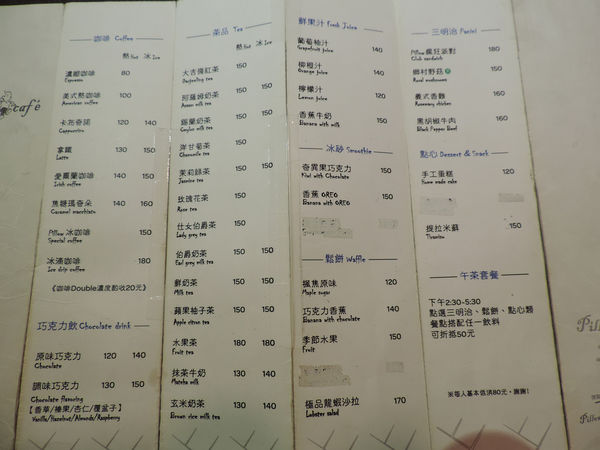 café
咖啡 Coffee
熱 Hot 冰 Ice
濃縮咖啡 80
Espresso
美式熱咖啡 100
American coffee
卡布奇諾 120 140
Cappuccino
拿鐵 130 150
Latte
愛爾蘭咖啡 140 150
Irish coffee
焦糖瑪奇朵 140 160
Caramel macchiato
Pillow 冰咖啡 150
Special coffee
冰滴咖啡 180
Ice drip coffee
《咖啡Double濃度酌收20元》
巧克力飲 Chocolate drink
原味巧克力 120 140
Chocolate
調味巧克力 130 150
Chocolate flavoring
【香草/榛果/杏仁/覆盆子】
Vanilla/Hazelnut/Almonds/Raspberry
茶品 Tea
熱 Hot 冰 Ice
大吉嶺紅茶 150
Darjeeling tea
阿薩姆奶茶 150 150
Assam milk tea
錫蘭奶茶 150 150
Ceylon milk tea
洋甘菊茶 150
Chamomile tea
茉莉綠茶 150 150
Jasmine tea
玫瑰花茶 150
Rose tea
仕女伯爵茶 150 150
Lady grey tea
伯爵奶茶 150 150
Earl grey milk tea
鮮奶茶 150 150
Milk tea
蘋果柚子茶 150 150
Apple citron tea
水果茶 180 180
Fruit tea
抹茶牛奶 130 140
Matcha milk
玄米奶茶 130 140
Brown rice milk tea
鮮果汁 Fresh Juice
葡萄柚汁 140
Grapefruit juice
柳橙汁 140
Orange juice
檸檬汁 120
Lemon juice
香蕉牛奶 150
Banana with milk
冰砂 Smoothie
奇異果巧克力 150
Kiwi with Chocolate
香蕉 OREO 150
Banana with OREO
鬆餅 Waffle
楓焦原味 120
Maple sugar
巧克力香蕉 140
Banana with chocolate
季節水果 150
Fruit
極品龍蝦沙拉 170
Lobster salad
三明治 Panini
Pillow 瘋狂派對 180
Club sandwich
鄉村野菇 150
Rural mushrooms
義式香雞 160
Rosemary chicken
黑胡椒牛肉 160
Black Pepper Beef
點心 Dessert & Snack
手工蛋糕 120
Home made cake
提拉米蘇 150
Tiramisu
午茶套餐
下午2:30-5:30
點選三明治、鬆餅、點心類
餐點搭配任一飲料
可折抵50元
※每人基本低消80元，謝謝!